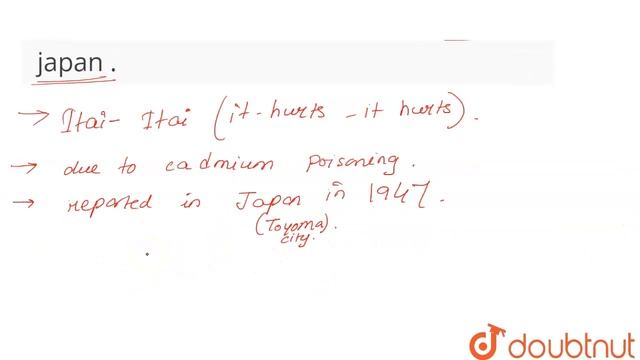 japan .
→ Itai- Itai (it-hurts - it hurts).
→ due to cadmium poisoning.
→ reported in Japan in 1947.
(Toyoma).
city.
doubtnut